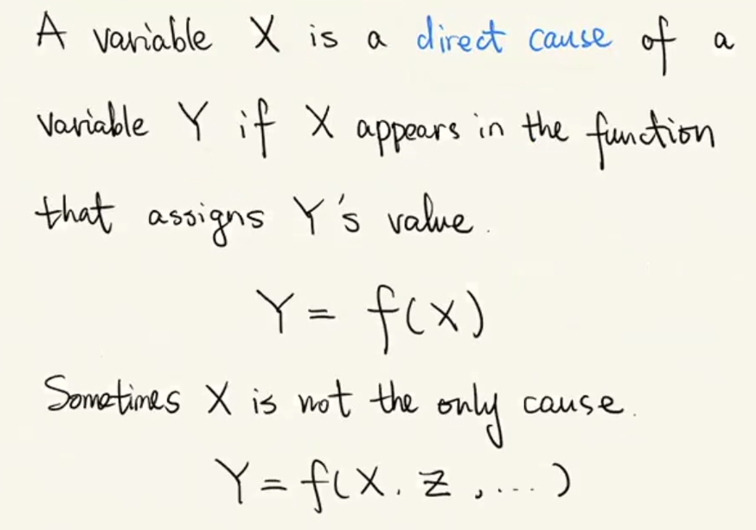 A variable X is a direct cause of a
variable Y if X appears in the function
that assigns Y's value.
Y = f(X)
Sometimes X is not the only cause.
Y = f(X, Z, ...)